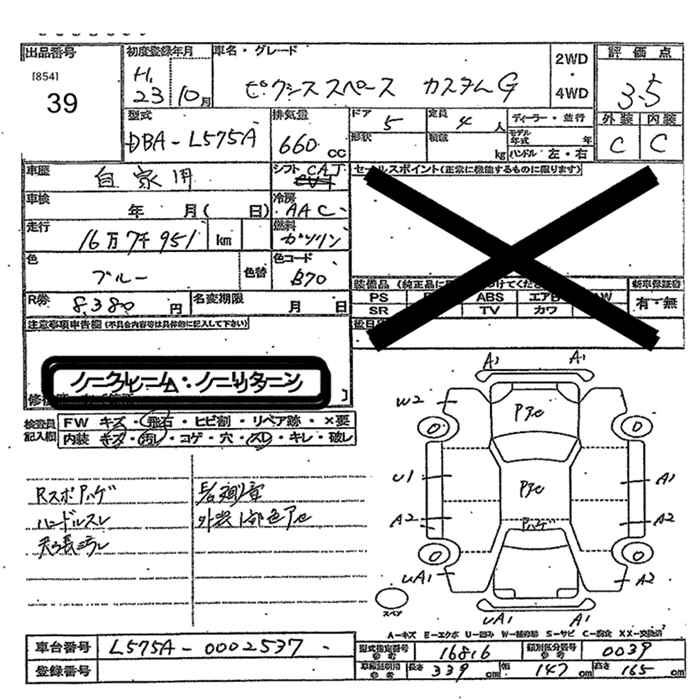 出品番号 初度登録年月 車名・グレード 2WD・4WD 評価点
[854] 39 H.23 10月 ピクシススペース カスタムG 3.5
型式 DBA-L575A 排気量 660 cc ドア 5 定員 4人 ディーラー・並行 外装 内装
形状 積載 kg モデル年式 年 ハンドル 左・右 C C
車歴 自家用 シフト CAT セールスポイント(正常に機能するものに限ります)
車検 年 月( 日) 冷房 AAC
走行 16万7千951 km 燃料 ガソリン
色 ブルー 色替 色コード B70
装備品 新車保証書
PS ABS エアB AW 有・無
SR TV カワ
R券 8,380円 名変期限 月 日
注意事項申告欄(不具合内容等は具体的に記入して下さい)
ノークレーム・ノーリターン
検査員記入欄 FW キズ・飛石・ヒビ割・リペア跡・×要
内装 キズ・汚れ・コゲ・穴・スレ・キレ・破レ
RスポAハゲ
ハンドルスレ
外装1部色アセ
A1 A1
W2 Pアセ
U1 Pアセ A1
A2 Pハゲ A2
UA1 A2
スペア UA1 A1
A-キズ E-エクボ U-凹み W-補修跡 S-サビ C-腐食 XX-交換済
車台番号 L575A-0002537 型式指定番号 16816 類別区分番号 0039
登録番号 長さ 339 cm 幅 147 cm 高さ 165 cm